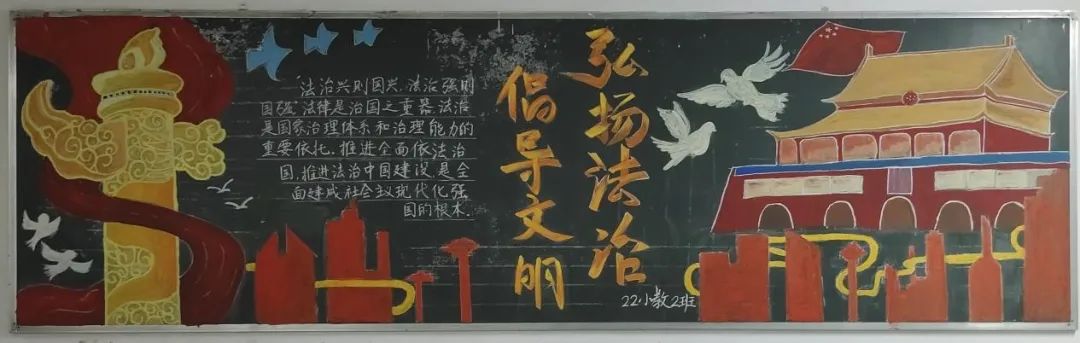 弘扬法治
倡导文明
法治兴则国兴,法治强则
国强,法律是治国之重器,法准
是国家治理体系和治理能力的
重要依托,推进全面依法治
国,推进法治中国建设,是全
面建成社会主义现代化强
国的根本.
22小教2班